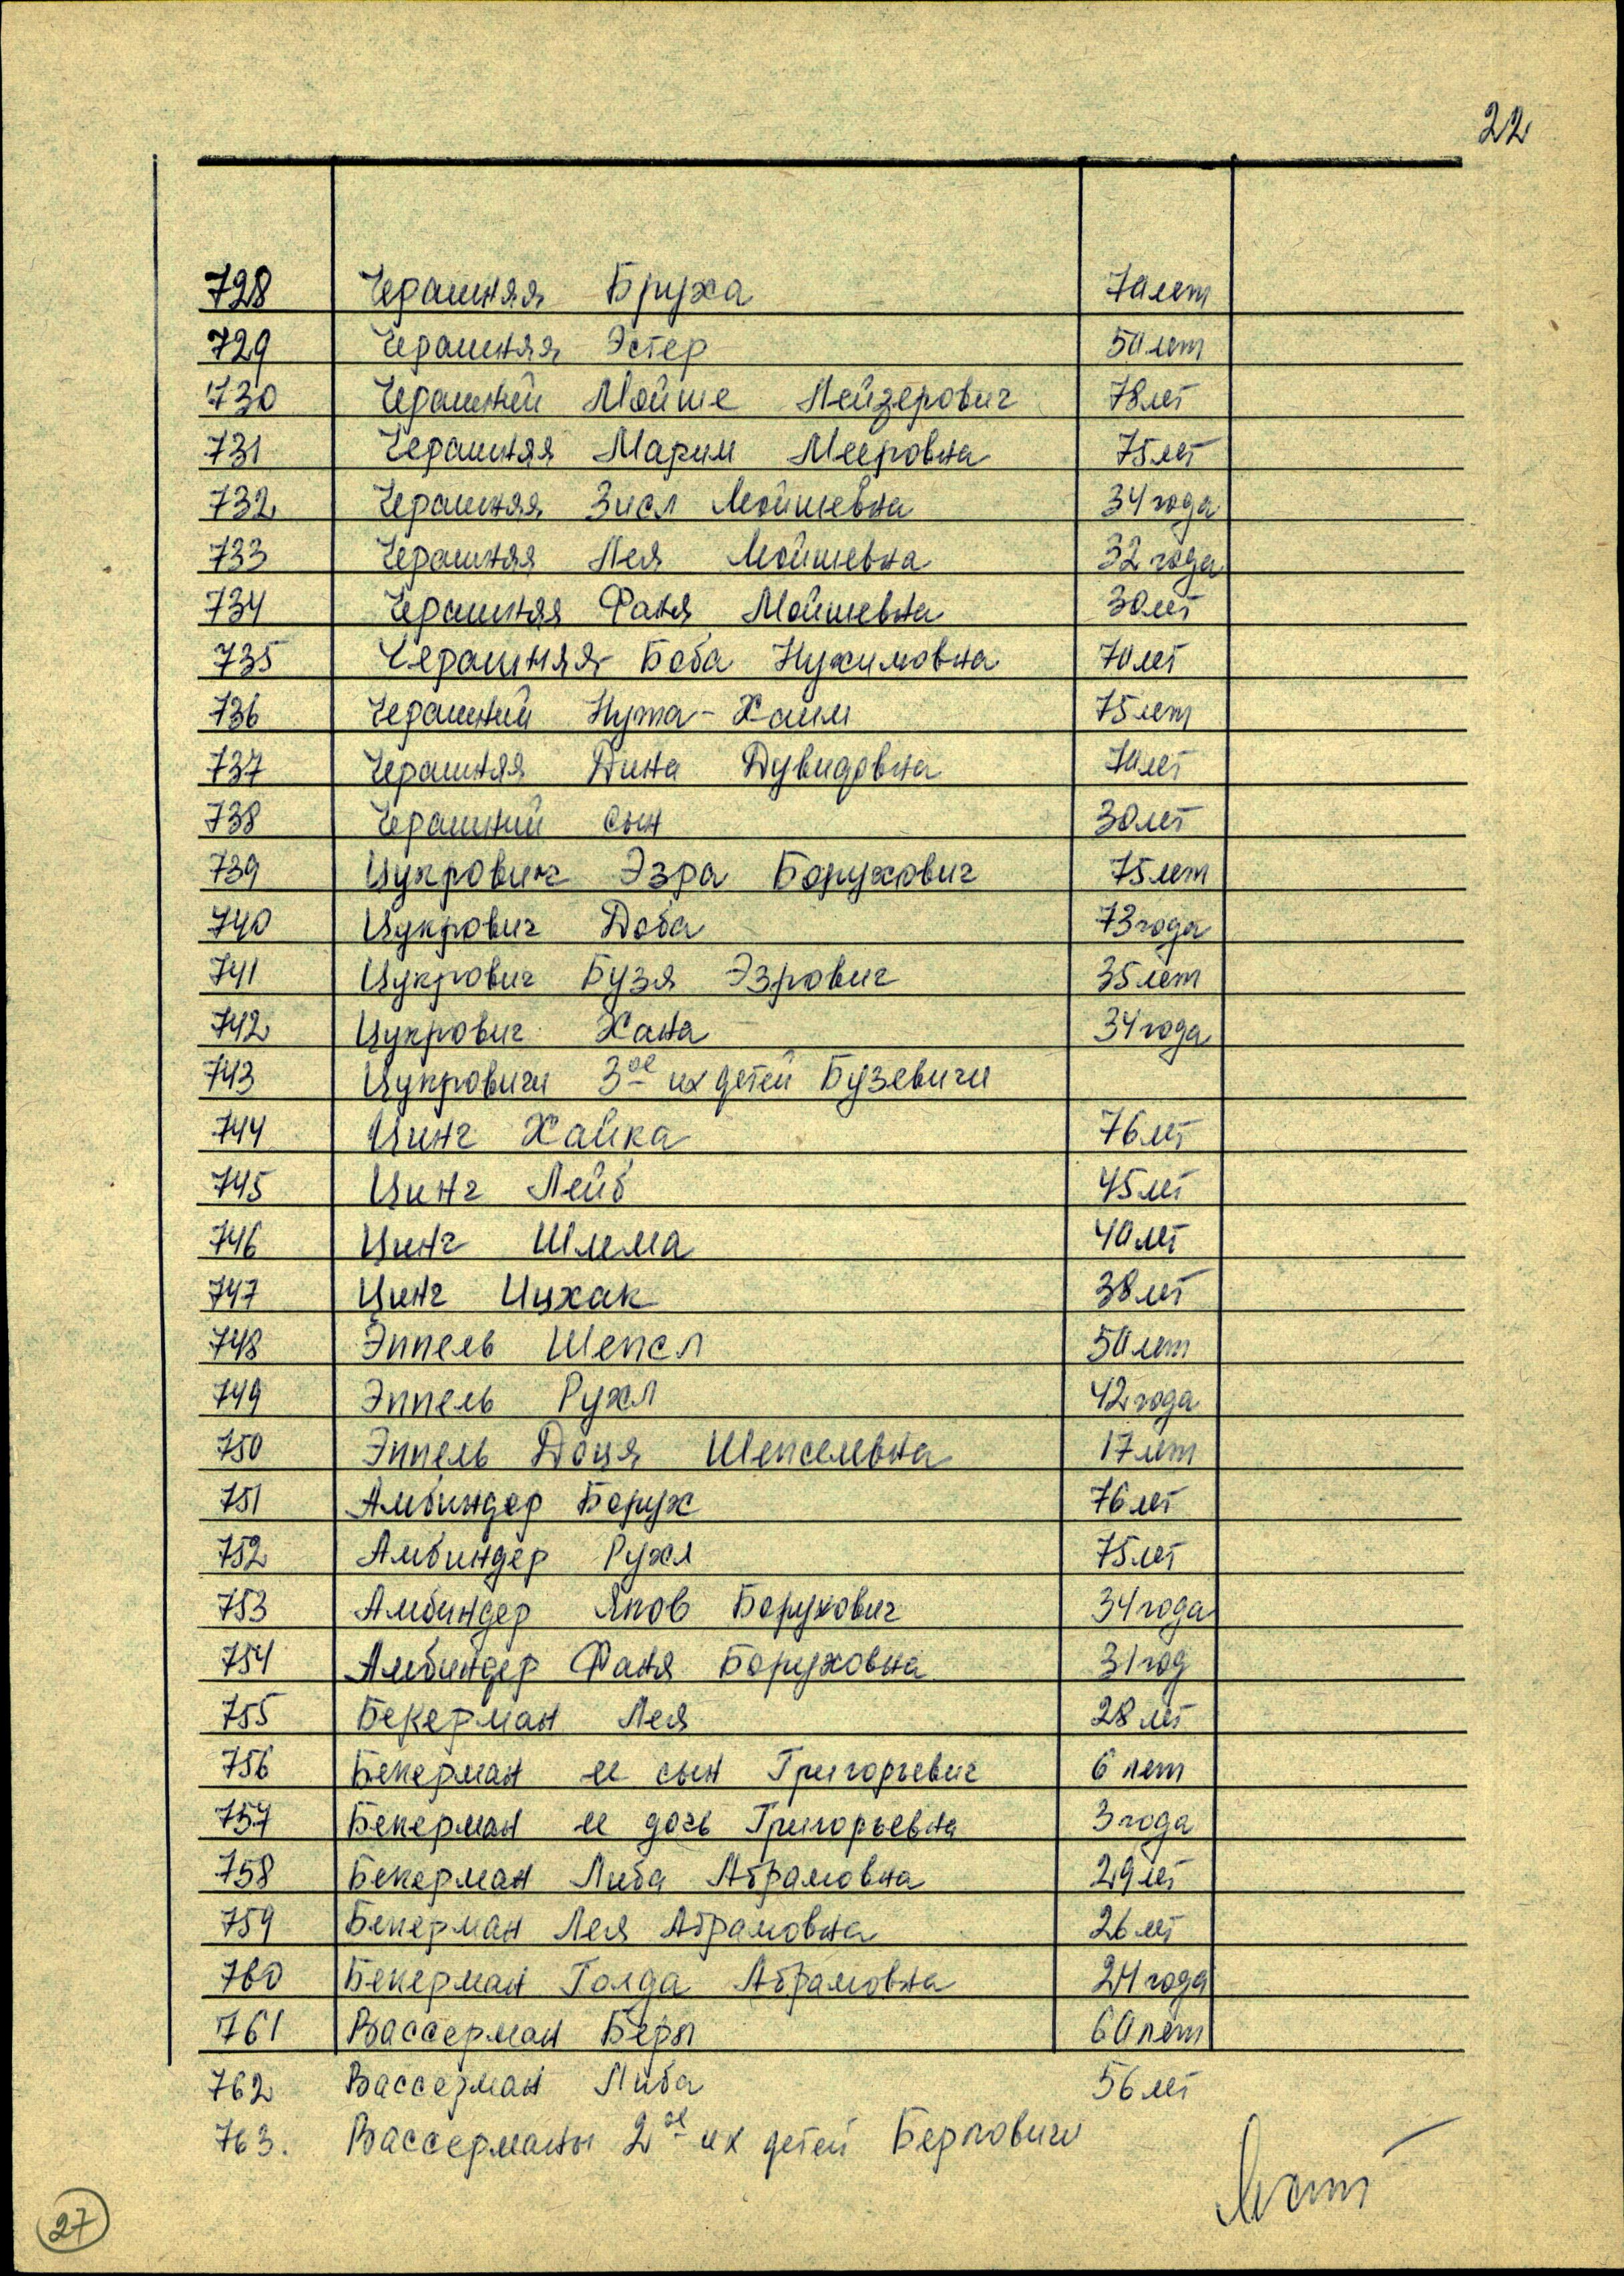 22
728 Черашняя Бруха 70 лет
729 Черашняя Эстер 50 лет
730 Черашний Мойше Лейзерович 78 лет
731 Черашняя Марим Мееровна 75 лет
732 Черашняя Зисл Мойшевна 34 года
733 Черашняя Лея Мойшевна 32 года
734 Черашняя Фаня Мойшевна 30 лет
735 Черашняя Боба Нухимовна 70 лет
736 Черашний Нута-Хаим 75 лет
737 Черашняя Дина Дувидовна 70 лет
738 Черашний сын 30 лет
739 Цукрович Эзра Борухович 75 лет
740 Цукрович Доба 73 года
741 Цукрович Бузя Эзрович 35 лет
742 Цукрович Хана 34 года
743 Цукровичи 3ое их детей Бузевичи
744 Цинг Хайка 76 лет
745 Цинг Лейб 45 лет
746 Цинг Шлема 40 лет
747 Цинг Ицхак 38 лет
748 Эппель Шепсл 50 лет
749 Эппель Рухл 42 года
750 Эппель Доця Шепселевна 17 лет
751 Амбиндер Борух 76 лет
752 Амбиндер Рухл 75 лет
753 Амбиндер Яков Борухович 34 года
754 Амбиндер Фаня Боруховна 31 год
755 Бекерман Лея 28 лет
756 Бекерман ее сын Григорьевич 6 лет
757 Бекерман ее дочь Григорьевна 3 года
758 Бекерман Либа Абрамовна 29 лет
759 Бекерман Лея Абрамовна 26 лет
760 Бекерман Голда Абрамовна 24 года
761 Вассерман Берл 60 лет
762 Вассерман Либа 56 лет
763. Вассерманы 2ое их детей Берловичи
27